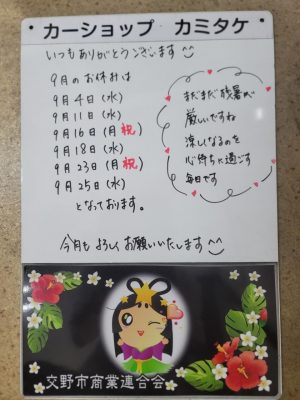 カーショップ カミタケ
いつもありがとうございます^^
9月のお休みは
9月4日(水)
9月11日(水)
9月16日(月祝)
9月18日(水)
9月23日(月祝)
9月25日(水)
となっております。
まだまだ残暑が
厳しいですね
涼しくなるのを
心待ちに過ごす
毎日です
今月もよろしくお願いいたします^^
交野市商業連合会